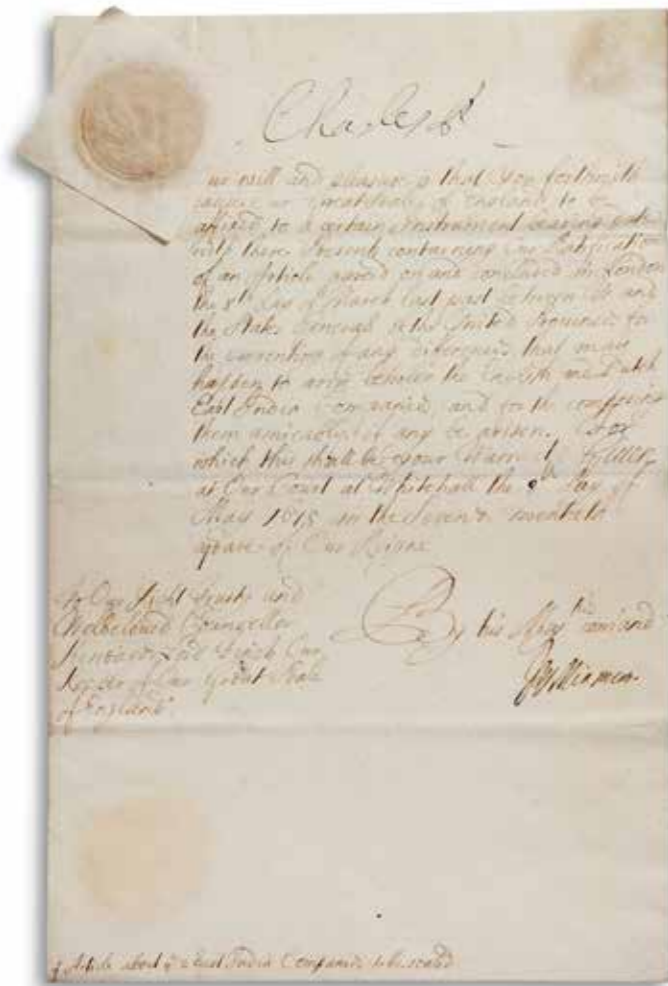 Charles R
Our will and pleasure is that you forthwith
cause our Great Seale of England to be
affixed to a certain Instrument bearing date
with these Presents containing Our Ratification
of an Article agreed on and concluded in London
the 8th day of March last past between Us and
the States Generall of the United Provinces for
the prevention of any differences that may
happen to arise between the English and Dutch
East India Companies and for the composing
them amicably if any be arisen. For
which this shall be your Warrant. Given
at Our Court at Whitehall the day of
May 1675 in the Seven & twentieth
yeare of Our Reigne
To Our Right Trusty and
Welbeloved Councellor
Lord Finch Our
Keeper of Our Great Seale
of England.
By his Majties comand
JWilliamson
Article about ye East India Companies to be sealed